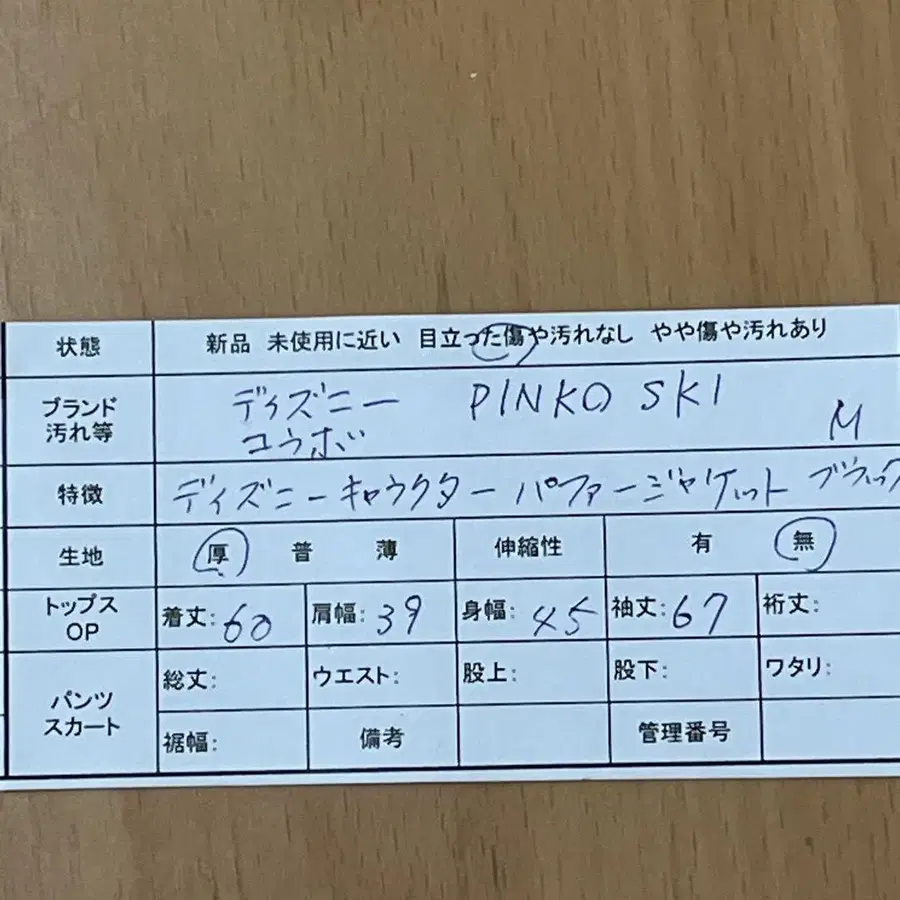 状態 新品 未使用に近い 目立った傷や汚れなし やや傷や汚れあり
ブランド 汚れ等 ディズニー コラボ PINKO SKI M
特徴 ディズニーキャラクター パファージャケット ブラック
生地 厚 普 薄 伸縮性 有 無
トップス OP 着丈: 60 肩幅: 39 身幅: 45 袖丈: 67 裄丈:
パンツ スカート 総丈: ウエスト: 股上: 股下: ワタリ:
裾幅: 備考 管理番号